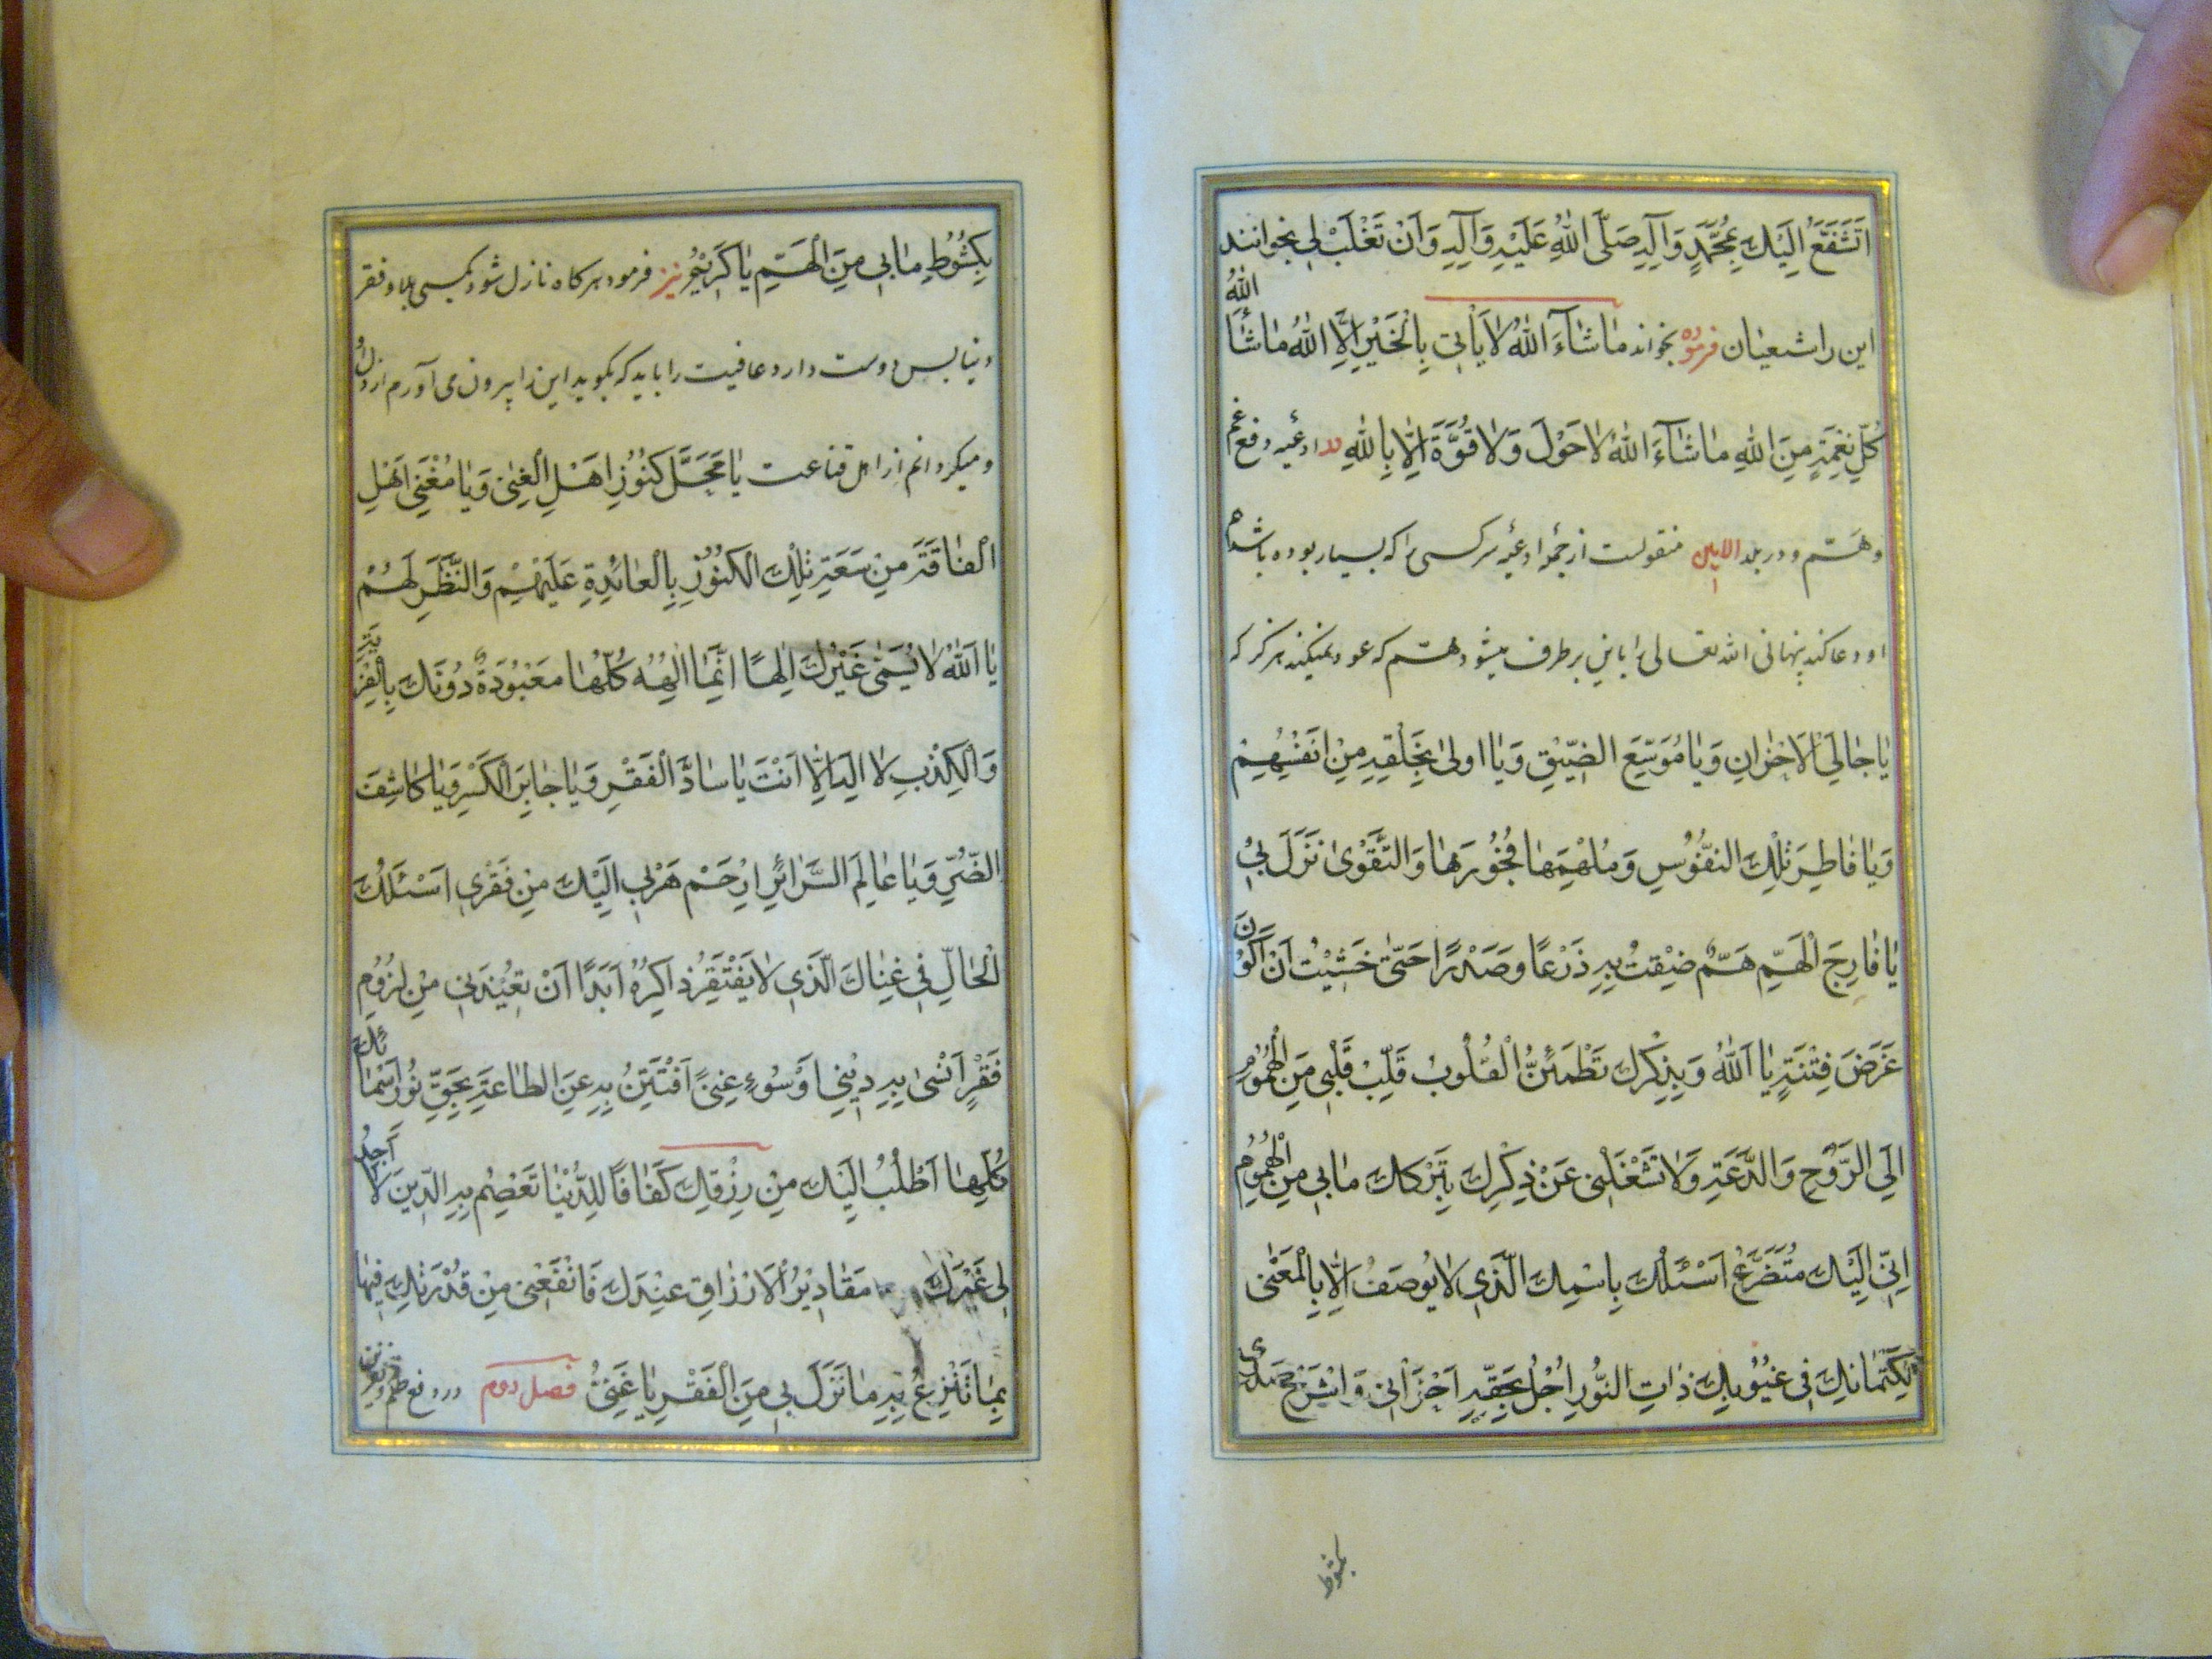 اَتَشَفَّعُ اِلَیْكَ بِمُحَمَّدٍ وَآلِهِ صَلَّی اللّٰهُ عَلَیْهِ وَآلِهِ وَاَنْ تَغْلَبْ لِی بخوانند
این را شعبان فرموده بخواند مٰا شٰآءَ اللّٰهُ لاٰ یَأتِی بِالْخَیْرِ اِلَّا اللّٰهُ مٰا شٰآءَ اللّٰهُ
كُلِّ نِعْمَةٍ مِنَ اللّٰهِ مٰا شٰآءَ اللّٰهُ لاٰ حَوْلَ وَلاٰ قُوَّةَ اِلّٰا بِاللّٰهِ ادعیه دفع غم
وهَمّ ودر بلد الامین منقولست از جمله ادعیه سر کسی را که بسیار بوده باشد هم
او دعا کند پنهانی الله تعالی را باین بر طرف میشود همّ که عود نمیکند هرگز که
یٰا جٰالِیَ الْاَحْزٰانِ وَیٰا مُوَسِّعَ الضِّیْقِ وَیٰا اولیٰ بِخَلْقِهِ مِنْ اَنْفُسِهِمْ
وَیٰا فٰاطِرَ تِلْكَ النُّفُوْسِ وَمُلْهِمَهٰا فُجُوْرَهٰا وَالتَّقْوٰی نَزَلَ بِیْ
یٰا فٰارِجَ الْهَمِّ هَمٌّ ضِقْتُ بِهِ ذَرْعًا وَصَدْرًا حَتّٰی خَشِیْتُ اَنْ اَکُوْنَ
غَرَضَ فِتْنَةٍ یٰا اَللّٰهُ وَبِذِكْرِكَ تَطْمَئِنُّ الْقُلُوْبُ قَلِّبْ قَلْبِی مِنَ الْهُمُوْمِ
اِلَی الرَّوْحِ وَالدَّعَةِ وَلاٰ تَشْغَلْنِی عَنْ ذِكْرِكَ بِتَرْكِكَ مٰا بِی مِنَ الْهُمُوْمِ
اِنِّی اِلَیْكَ مُتَضَرِّعٌ اَسْئَلُكَ بِاسْمِكَ الَّذِی لاٰ یُوصَفُ اِلّٰا بِالْمَعْنٰی
لِكِتْمٰانِكَ فِی غُیُوْبِكَ ذٰاتِ النُّوْرِ اُجْلُ بِحَقِّهِ اَحْزٰانِی وَاشْرَحْ صَدْرِی
بکشوط
بِكُشُوْطِ مٰا بِی مِنَ الْهَمِّ یٰا كَرِیْمُ نیز فرمود هر کاه نازل شود بکسی بلا و فقر
دنیا پس دوست دارد عافیت را باید که بگوید این را بیرون می آورم از دل او
ومیکردانم از اهل قناعت یٰا مَحَلَّ كُنُوْزِ اَهْلِ الْغِنٰی وَیٰا مُغْنِیَ اَهْلِ
الْفٰاقَةِ مِنْ سَعَةِ تِلْكَ الْكُنُوْزِ بِالْعٰائِدَةِ عَلَیْهِمْ وَالنَّظَرِ لَهُمْ
یٰا اَللّٰهُ لاٰ یُسَمّٰی غَیْرُكَ اِلٰهًا اِنَّمَا الْآلِهَةُ كُلُّهٰا مَعْبُوْدَةٌ دُوْنَكَ بِالْفِرْیَةِ
وَالْكِذْبِ لاٰ اِلٰهَ اِلّٰا اَنْتَ یٰا سٰادَّ الْفَقْرِ وَیٰا جٰابِرَ الْكَسْرِ وَیٰا كٰاشِفَ
الضُّرِّ وَیٰا عٰالِمَ السَّرٰائِرِ ارْحَمْ هَرَبِی اِلَیْكَ مِنْ فَقْرِی اَسْئَلُكَ
الْحٰالِّ فِی غِنٰاكَ الَّذِی لاٰ یَفْتَقِرُ ذٰاكِرُهُ اَبَدًا اَنْ تُعِیْذَنِی مِنْ لُزُوْمِ
فَقْرٍ اَنْسٰی بِهِ دِیْنِی اَوْ سُوْءِ غِنیً اَفْتَتِنُ بِهِ عَنِ الطّٰاعَةِ بِحَقِّ نُوْرِ اَسْمٰائِكَ
كُلِّهٰا اَطْلُبُ اِلَیْكَ مِنْ رِزْقِكَ كَفٰافًا لِلدُّنْیٰا تَعْصِمُ بِهِ الدِّینَ لاٰ اَجِدُ
لِی غَیْرَكَ مَقٰادِیْرُ الْاَرْزٰاقِ عِنْدَكَ فَانْفَعْنِی مِنْ قُدْرَتِكَ فِیهٰا
بِمٰا تَنْزِعُ بِهِ مٰا نَزَلَ بِی مِنَ الْفَقْرِ یٰا غَنِیُّ فصل دوم در دفع ظلم